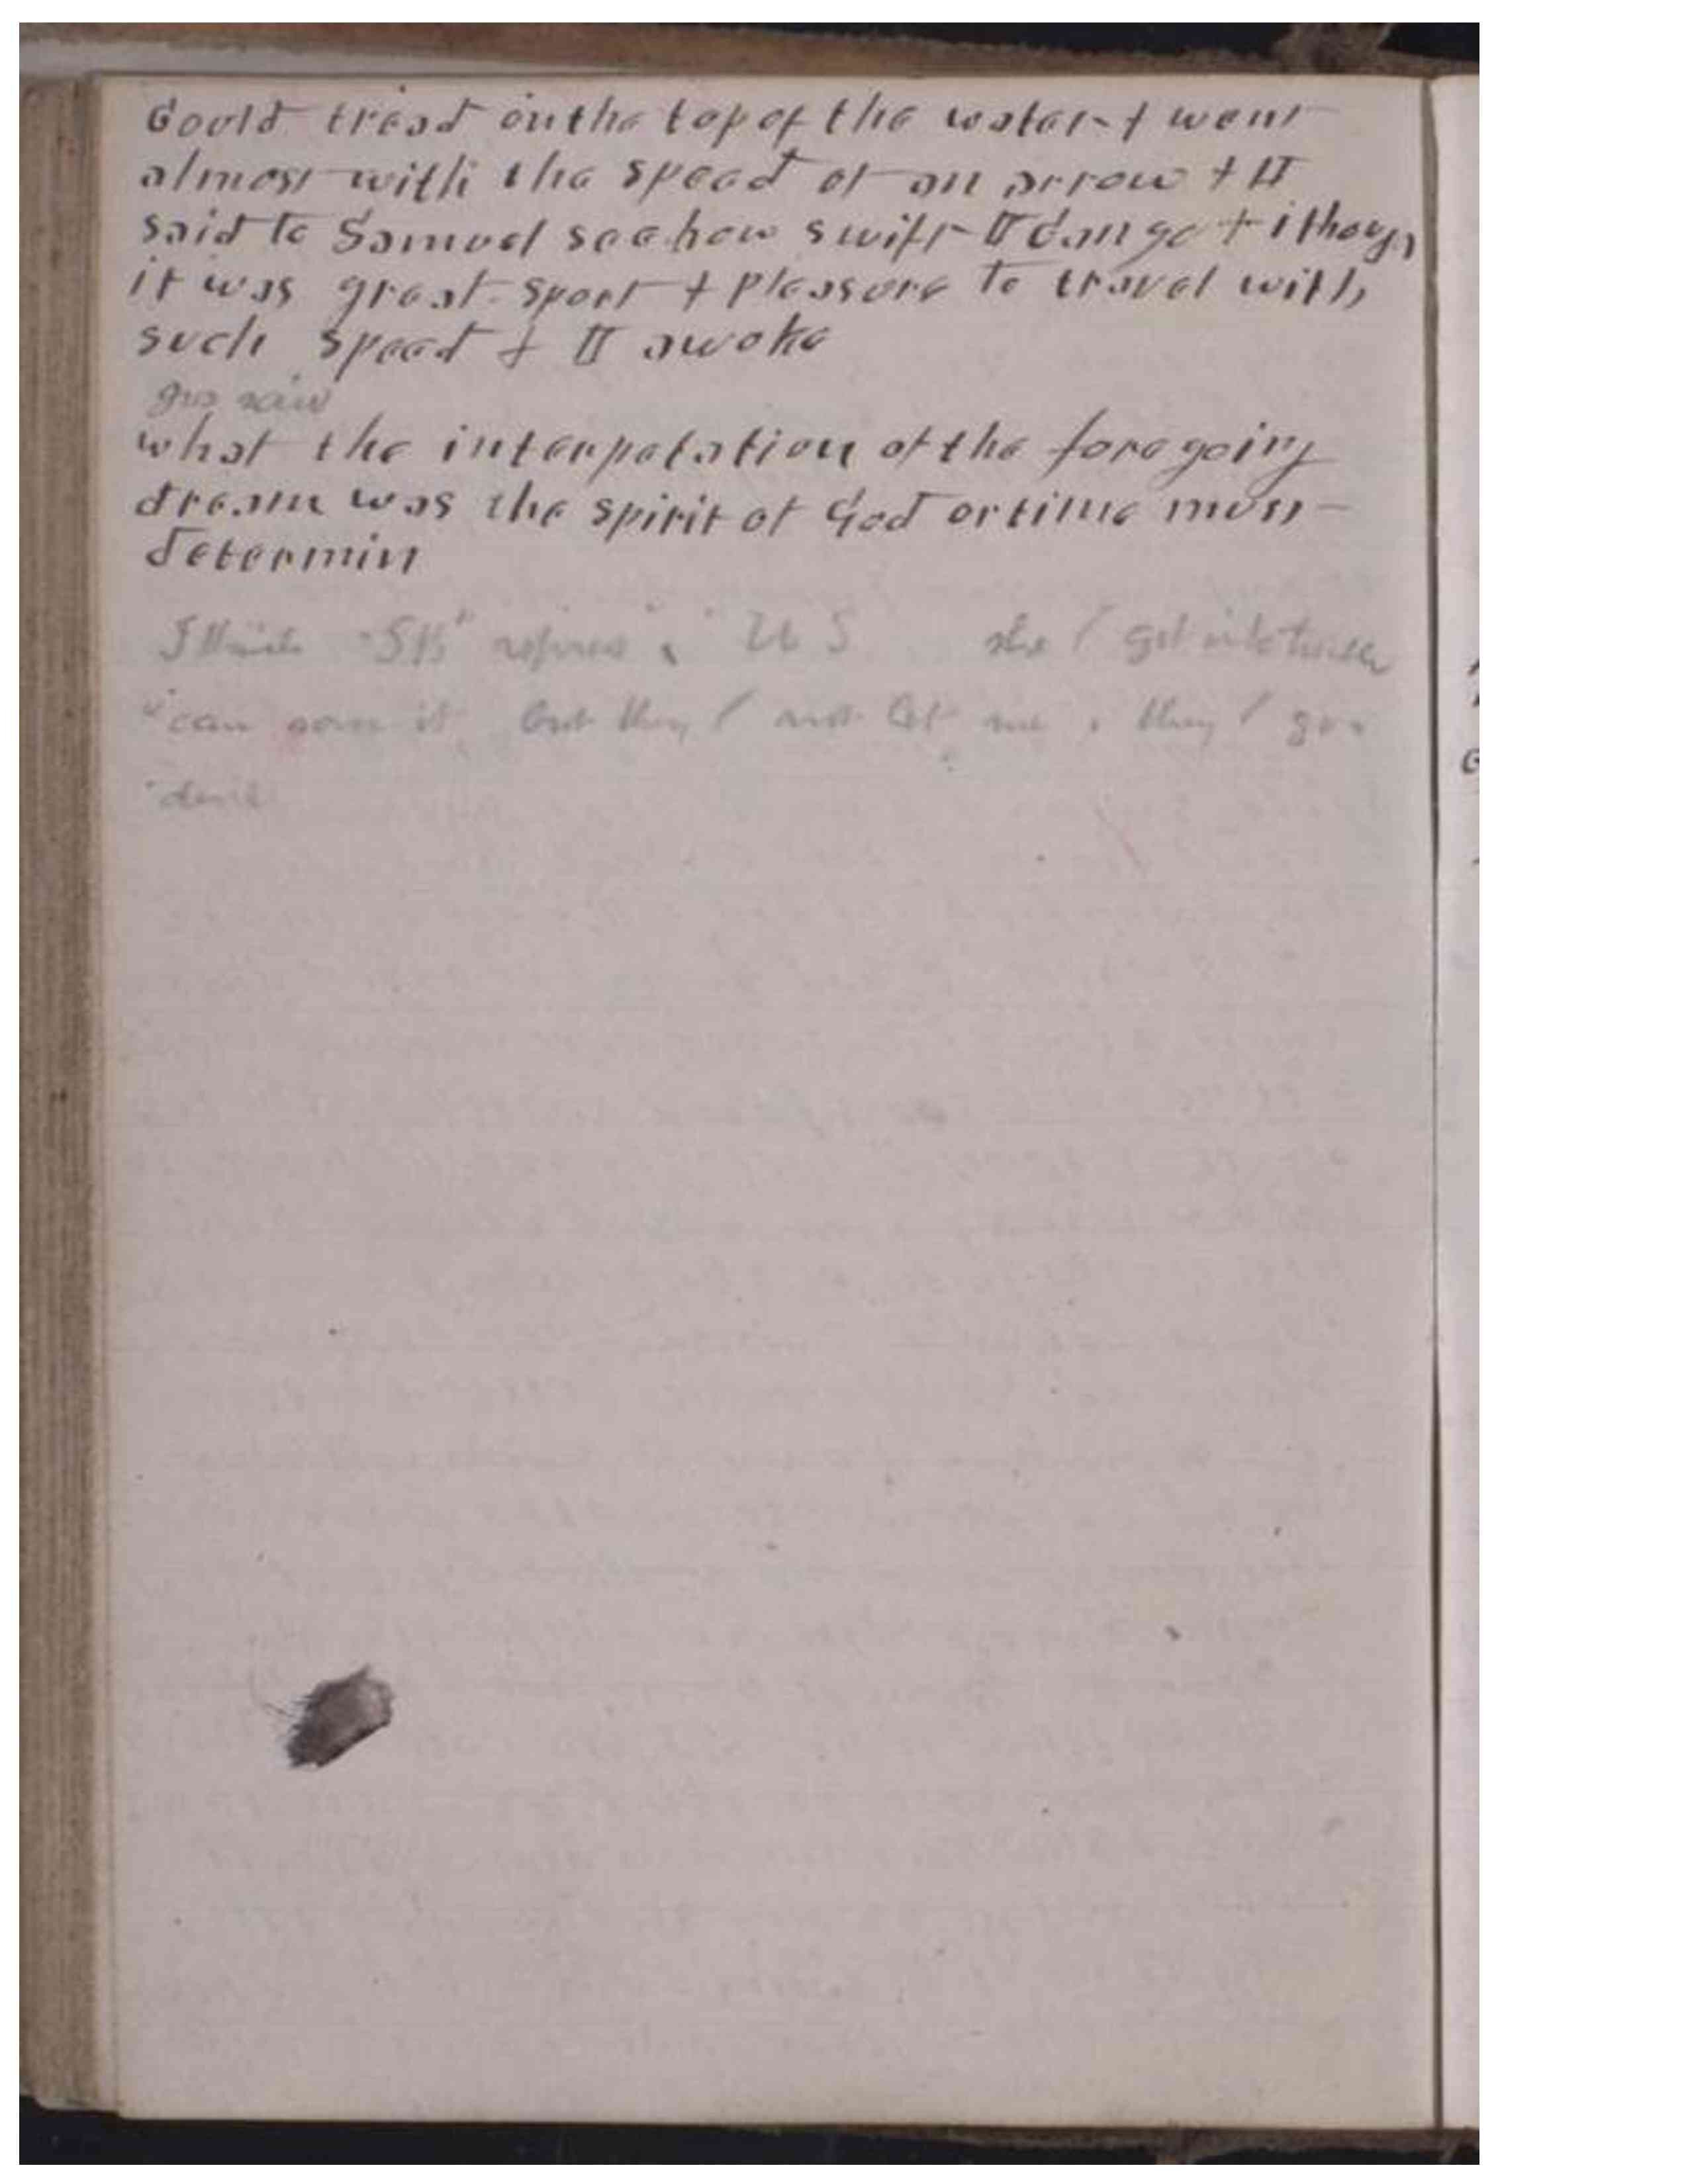 Could tread on the top of the water & went
almost with the speed of an arrow & II
said to Samuel see how swift II can go & i thoug
it was great sport & Pleasure to travel with
such speed & II awoke
what the interpatation of the foregoing
dream was the spirit of God or time must
determin
I think "Sh" U S she / get into trouble
can it but they / not let me they /